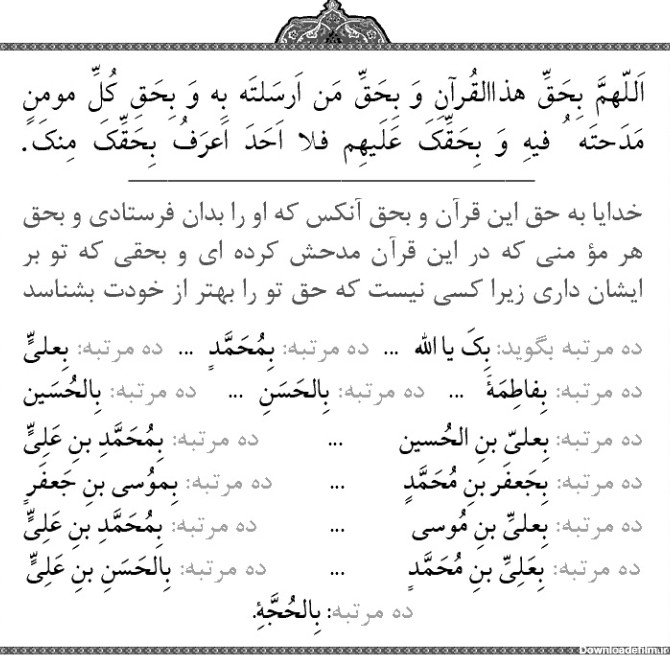 اَللّهمَّ بِحَقِّ هذاالقُرآنِ وَ بِحَقِّ مَن اَرسَلتَه بِه وَ بِحَقِ کُلِّ مومنٍ
مَدَحتَه ُ فیهِ وَ بِحَقِّکَ عَلَیهِم فلا اَحَدَ اَعرَفُ بِحَقِّکَ مِنکَ.
خدایا به حق این قرآن و بحق آنکس که او را بدان فرستادی و بحق
هر مؤ منی که در این قرآن مدحش کرده ای و بحقی که تو بر
ایشان داری زیرا کسی نیست که حق تو را بهتر از خودت بشناسد
ده مرتبه بگوید: بِکَ یا الله ... ده مرتبه: بِمُحَمَّدٍ ... ده مرتبه: بِعلیٍّ
ده مرتبه: بِفاطِمَةَ ... ده مرتبه: بِالحَسَنِ ... ده مرتبه: بِالحُسَین
ده مرتبه: بِعلیّ بنِ الحُسین ... ده مرتبه: بِمُحَمَّدِ بنِ عَلِیٍّ
ده مرتبه: بِجَعفَر بنِ مُحَمَّدٍ ... ده مرتبه: بِموُسی بنِ جَعفَرٍ
ده مرتبه: بِعلیِّ بنِ مُوسی ... ده مرتبه: بِمُحَمَّدِ بنِ عَلِیٍّ
ده مرتبه: بِعَلِیِّ بنِ مُحَمَّدٍ ... ده مرتبه: بِالحَسَنِ بنِ عَلِیٍّ
ده مرتبه: بِالحُجَّةِ.
Downloadefilm.ir